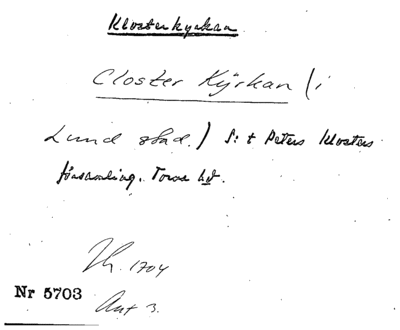 Klosterkyrkan
Closter Kÿrkan (i
Lund stad.) S:t Peters Klosters
församling. Torna hd.
Th. 1704
Nr 5703
Ant 3.